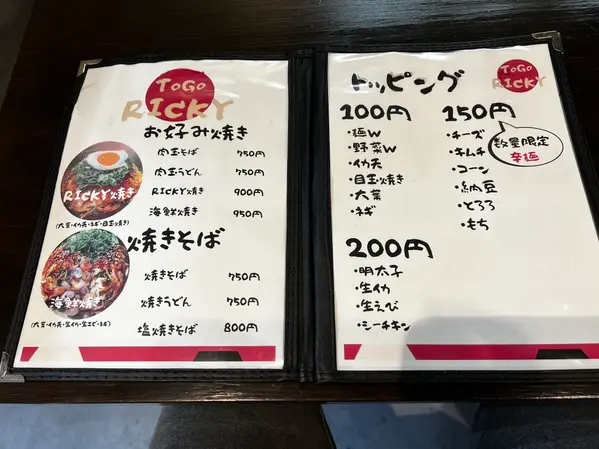 ToGo
RICKY
お好み焼き
肉玉そば 750円
肉玉うどん 750円
RICKY焼き 900円
海鮮焼き 950円
RICKY焼き
(大葉・イカ天・ネギ・目玉焼き)
焼きそば
焼きそば 750円
焼きうどん 750円
塩焼きそば 800円
海鮮焼き
(大葉・イカ天・生イカ・生エビ・ネギ)
トッピング
ToGo
RICKY
100円
・麺W
・野菜W
・イカ天
・目玉焼き
・大葉
・ネギ
150円
・チーズ
・キムチ
・コーン
・納豆
・とろろ
・もち
数量限定
辛麺
200円
・明太子
・生イカ
・生えび
・シーチキン